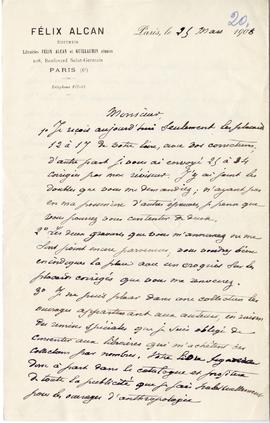 20.
FÉLIX ALCAN
ÉDITEUR
Librairies FÉLIX ALCAN et GUILLAUMIN réunies
108, Boulevard Saint-Germain
PARIS (6e)
Téléphone
Paris, le 25 Mars 1908
Monsieur,
1º Je reçois aujourd'hui seulement les placards
12 à 17 de votre livre, avec vos corrections,
d'autre part je vous ai envoyé 25 à 34
corrigés par mon réviseur. J'y ai joint les
doubles que vous me demandiez, n'ayant pas
en ma possession d'autres épreuves je pense que
vous pourrez vous contenter de deux.
2º Les deux gravures que vous m'annoncez ne me
sont point encore parvenues, vous voudrez bien
en indiquer la place avec un croquis sur les
placards corrigés que vous me renverrez.
3º Je ne puis placer dans une collection les
ouvrages appartenant aux auteurs, en raison
des remises spéciales que je suis obligé de
consentir aux libraires qui m'achètent des
collections par nombres. Votre livre
donc à part dans le catalogue et profitera
de toute la publicité que je fais habituellement
pour les ouvrages d'anthropologie